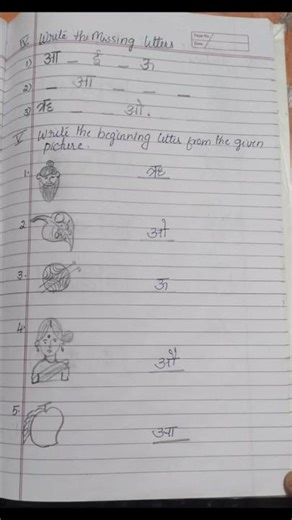 IV Write the Missing letters
1) आ _ ई _ ऊ
2) _ आ _ _ _
3) ऋ _ _ _ ओ.
V Write the beginning letter from the given
picture.
1. ऋ
2. ओ
3. ऊ
4. औ
5. आ